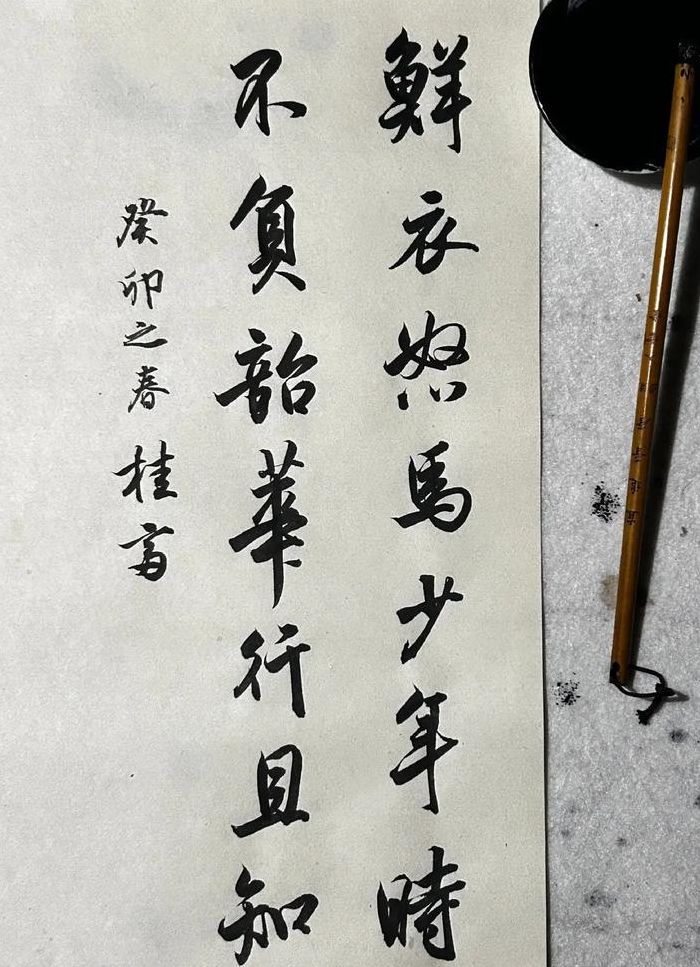 鮮衣怒馬少年時
不負韶華行且知
癸卯之春 桂富